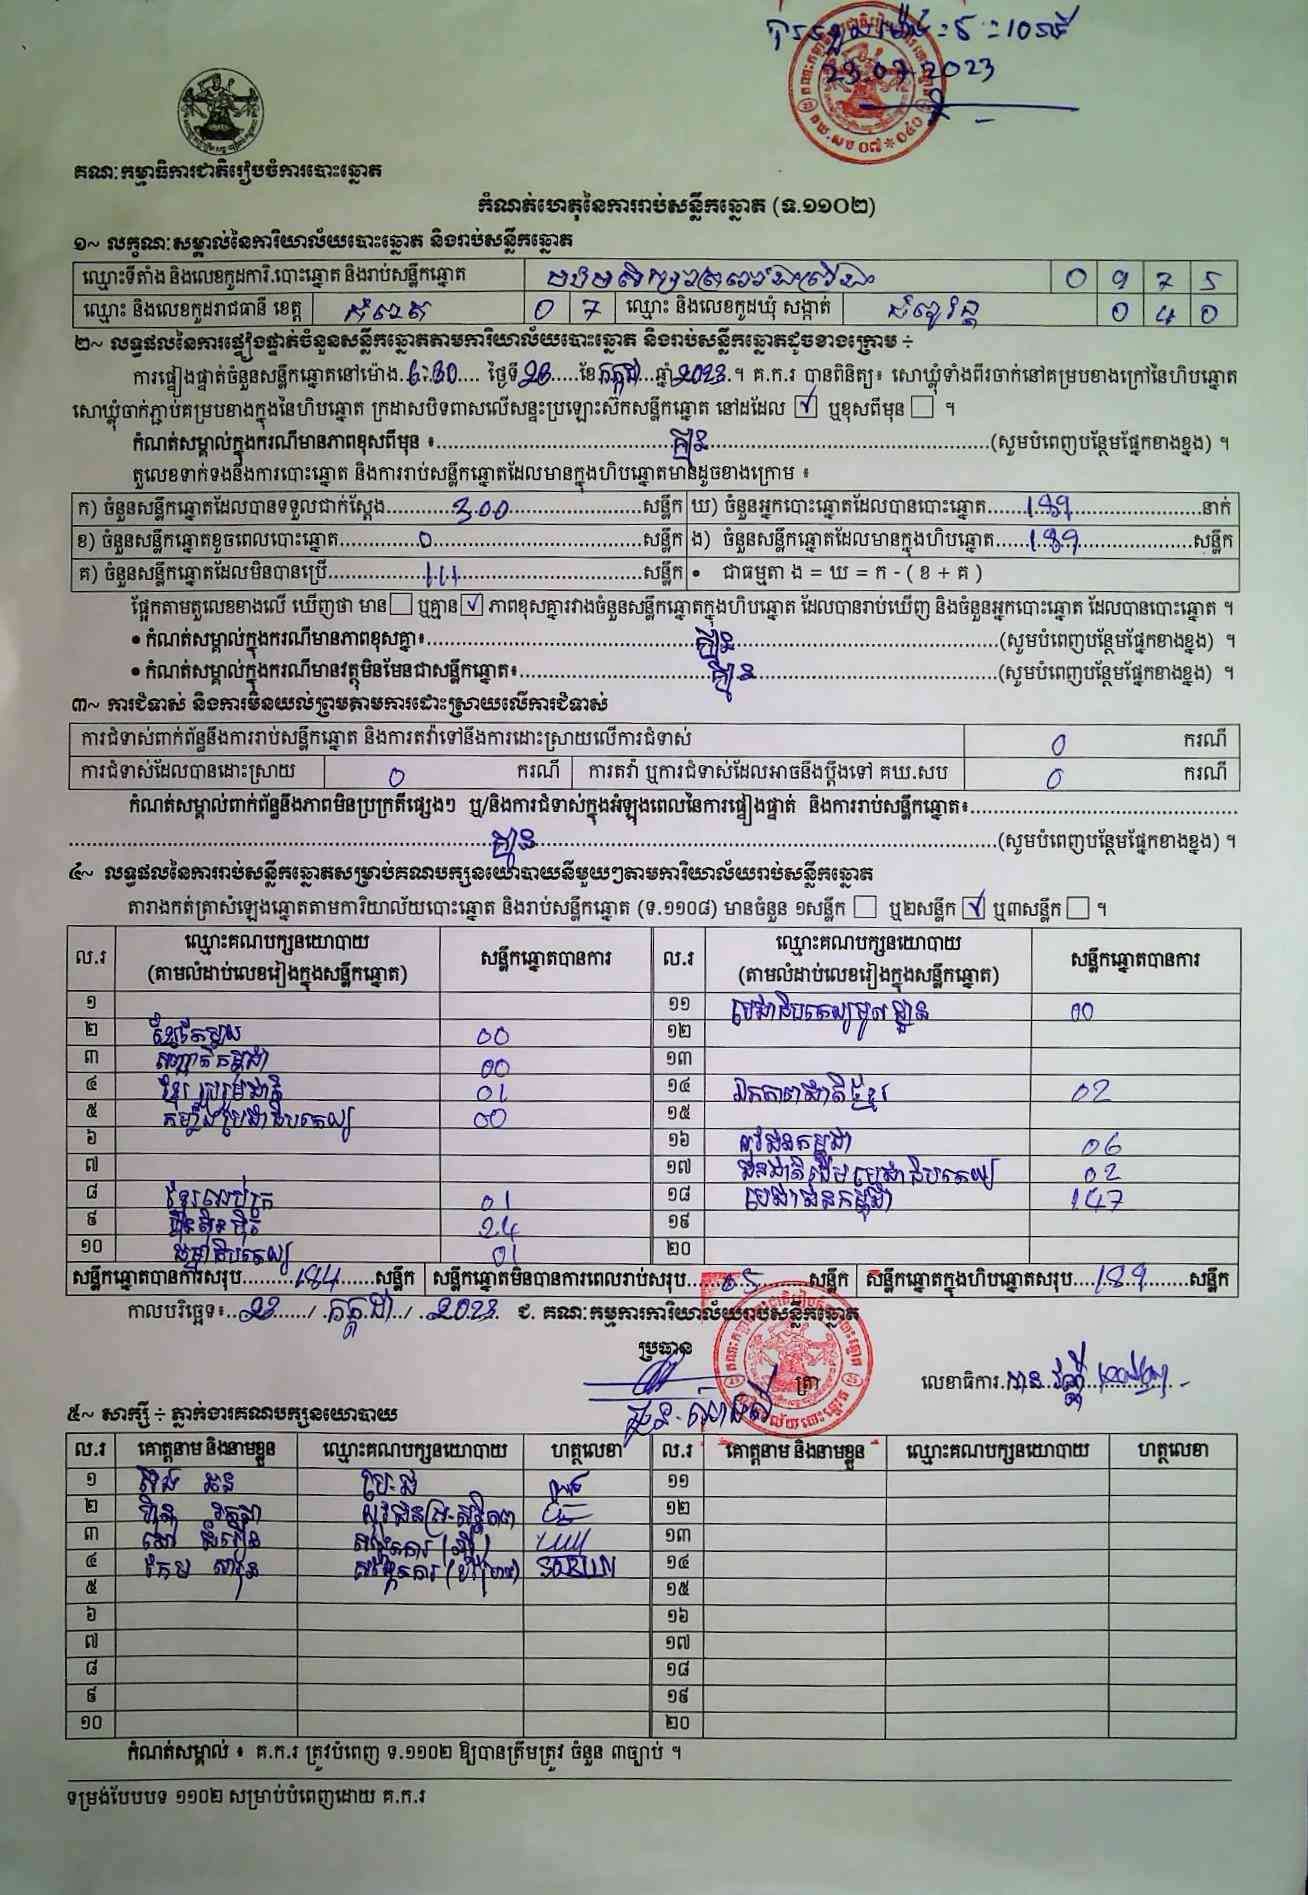 23.07.2023
គណៈកម្មាធិការជាតិរៀបចំការបោះឆ្នោត
កំណត់ហេតុនៃការរាប់សន្លឹកឆ្នោត (ទ.១១០២)
១~ លក្ខណៈសម្គាល់នៃការិយាល័យបោះឆ្នោត និងរាប់សន្លឹកឆ្នោត
ឈ្មោះទីតាំង និងលេខកូដការិ.បោះឆ្នោត និងរាប់សន្លឹកឆ្នោត 0 9 7 5
ឈ្មោះ និងលេខកូដរាជធានី ខេត្ត កំពត 0 7 ឈ្មោះ និងលេខកូដឃុំ សង្កាត់ 0 4 0
២~ លទ្ធផលនៃការផ្ទៀងផ្ទាត់ចំនួនសន្លឹកឆ្នោតតាមការិយាល័យបោះឆ្នោត និងរាប់សន្លឹកឆ្នោតដូចខាងក្រោម ÷
ការផ្ទៀងផ្ទាត់ចំនួនសន្លឹកឆ្នោតនៅម៉ោង ថ្ងៃទី 23 ខែ កក្កដា ឆ្នាំ 2023 ។ គ.ក.រ បានពិនិត្យ៖ សោឃ្លុំទាំងពីរចាក់នៅគម្របខាងក្រៅនៃហិបឆ្នោត
សោឃ្លុំចាក់ភ្ជាប់គម្របខាងក្នុងនៃហិបឆ្នោត ក្រដាសបិទពាសលើសន្ទះប្រឡោះស៊កសន្លឹកឆ្នោត នៅដដែល ☑ ឬខុសពីមុន ☐ ។
កំណត់សម្គាល់ក្នុងករណីមានភាពខុសពីមុន ៖ គ្មាន (សូមបំពេញបន្ថែមផ្នែកខាងខ្នង) ។
តួលេខទាក់ទងនឹងការបោះឆ្នោត និងការរាប់សន្លឹកឆ្នោតដែលមានក្នុងហិបឆ្នោតមានដូចខាងក្រោម ៖
ក) ចំនួនសន្លឹកឆ្នោតដែលបានទទួលជាក់ស្តែង 300 សន្លឹក ឃ) ចំនួនអ្នកបោះឆ្នោតដែលបានបោះឆ្នោត 189 នាក់
ខ) ចំនួនសន្លឹកឆ្នោតខូចពេលបោះឆ្នោត 0 សន្លឹក ង) ចំនួនសន្លឹកឆ្នោតដែលមានក្នុងហិបឆ្នោត 189 សន្លឹក
គ) ចំនួនសន្លឹកឆ្នោតដែលមិនបានប្រើ 111 សន្លឹក • ជាធម្មតា ង = ឃ = ក - ( ខ + គ )
ផ្អែកតាមតួលេខខាងលើ ឃើញថា មាន ☐ ឬគ្មាន ☑ ភាពខុសគ្នារវាងចំនួនសន្លឹកឆ្នោតក្នុងហិបឆ្នោត ដែលបានរាប់ឃើញ និងចំនួនអ្នកបោះឆ្នោត ដែលបានបោះឆ្នោត ។
• កំណត់សម្គាល់ក្នុងករណីមានភាពខុសគ្នា៖ គ្មាន (សូមបំពេញបន្ថែមផ្នែកខាងខ្នង) ។
• កំណត់សម្គាល់ក្នុងករណីមានវត្ថុមិនមែនជាសន្លឹកឆ្នោត៖ គ្មាន (សូមបំពេញបន្ថែមផ្នែកខាងខ្នង) ។
៣~ ការជំទាស់ និងការមិនយល់ព្រមតាមការដោះស្រាយលើការជំទាស់
ការជំទាស់ពាក់ព័ន្ធនឹងការរាប់សន្លឹកឆ្នោត និងការតវ៉ាទៅនឹងការដោះស្រាយលើការជំទាស់ 0 ករណី
ការជំទាស់ដែលបានដោះស្រាយ 0 ករណី ការតវ៉ា ឬការជំទាស់ដែលអាចនឹងប្តឹងទៅ គឃ.សប 0 ករណី
កំណត់សម្គាល់ពាក់ព័ន្ធនឹងភាពមិនប្រក្រតីផ្សេងៗ ឬ/និងការជំទាស់ក្នុងអំឡុងពេលនៃការផ្ទៀងផ្ទាត់ និងការរាប់សន្លឹកឆ្នោត៖
គ្មាន (សូមបំពេញបន្ថែមផ្នែកខាងខ្នង) ។
៤~ លទ្ធផលនៃការរាប់សន្លឹកឆ្នោតសម្រាប់គណបក្សនយោបាយនីមួយៗតាមការិយាល័យរាប់សន្លឹកឆ្នោត
តារាងកត់ត្រាសំឡេងឆ្នោតតាមការិយាល័យបោះឆ្នោត និងរាប់សន្លឹកឆ្នោត (ទ.១១០៨) មានចំនួន ១សន្លឹក ☐ ឬ២សន្លឹក ☑ ឬ៣សន្លឹក ☐ ។
ល.រ ឈ្មោះគណបក្សនយោបាយ (តាមលំដាប់លេខរៀងក្នុងសន្លឹកឆ្នោត) សន្លឹកឆ្នោតបានការ ល.រ ឈ្មោះគណបក្សនយោបាយ (តាមលំដាប់លេខរៀងក្នុងសន្លឹកឆ្នោត) សន្លឹកឆ្នោតបានការ
១ ១១ ប្រជាធិបតេយ្យមូលដ្ឋាន 00
២ ខ្មែរតែមួយ 00 ១២
៣ 00 ១៣
៤ ខ្មែររួបរួមជាតិ 01 ១៤ ឯកភាពជាតិខ្មែរ 02
៥ កម្លាំងប្រជាធិបតេយ្យ 00 ១៥
៦ ១៦ យុវជនកម្ពុជា 06
៧ ១៧ ជនជាតិដើមប្រជាធិបតេយ្យ 02
៨ ខ្មែរឈប់ក្រ 01 ១៨ ប្រជាជនកម្ពុជា 147
៩ ហ៊្វុនស៊ិនប៉ិច 24 ១៩
១០ ធម្មាធិបតេយ្យ 01 ២០
សន្លឹកឆ្នោតបានការសរុប 184 សន្លឹក សន្លឹកឆ្នោតមិនបានការពេលរាប់សរុប 05 សន្លឹក សន្លឹកឆ្នោតក្នុងហិបឆ្នោតសរុប 189 សន្លឹក
កាលបរិច្ឆេទ៖ 23 / កក្កដា / 2023 ជ. គណៈកម្មការការិយាល័យរាប់សន្លឹកឆ្នោត
ប្រធាន
ត្រា លេខាធិការ
៥~ សាក្សី ÷ ភ្នាក់ងារគណបក្សនយោបាយ
ល.រ គោត្តនាម និងនាមខ្លួន ឈ្មោះគណបក្សនយោបាយ ហត្ថលេខា ល.រ គោត្តនាម និងនាមខ្លួន ឈ្មោះគណបក្សនយោបាយ ហត្ថលេខា
១ ១១
២ ១២
៣ ១៣
៤ ១៤
៥ ១៥
៦ ១៦
៧ ១៧
៨ ១៨
៩ ១៩
១០ ២០
កំណត់សម្គាល់ ៖ គ.ក.រ ត្រូវបំពេញ ទ.១១០២ ឱ្យបានត្រឹមត្រូវ ចំនួន ៣ច្បាប់ ។
ទម្រង់បែបបទ ១១០២ សម្រាប់បំពេញដោយ គ.ក.រ